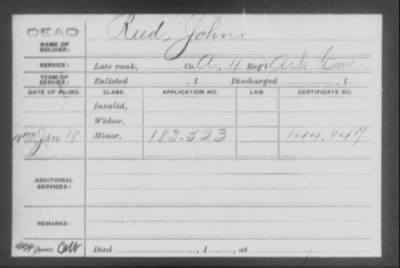 DEAD Reed, John.
NAME OF SOLDIER:
SERVICE: Late rank, Co. A. 4 Reg't Ark Cav.
TERM OF SERVICE: Enlisted , 1 Discharged , 1
DATE OF FILING. CLASS. APPLICATION NO. LAW. CERTIFICATE NO.
Invalid,
Widow,
Jan 18 Minor, 182.523 144.947
ADDITIONAL SERVICES:
REMARKS:
Died , 1 , at